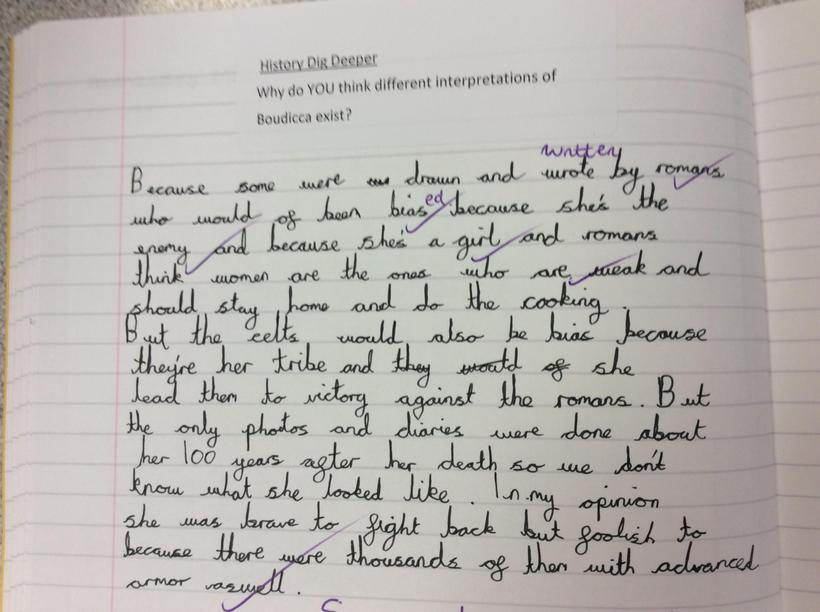 History Dig Deeper
Why do YOU think different interpretations of
Boudicca exist?
written
Because some were drawn and wrote by romans
ed
who would of been bias because she's the
enemy and because she's a girl and romans
think women are the ones who are weak and
should stay home and do the cooking.
But the celts would also be bias because
they're her tribe and they would of she
lead them to victory against the romans. But
the only photos and diaries were done about
her 100 years agter her death so we don't
know what she looked like. In my opinion
she was brave to fight back but foolish to
because there were thousands of them with advanced
armor aswell.